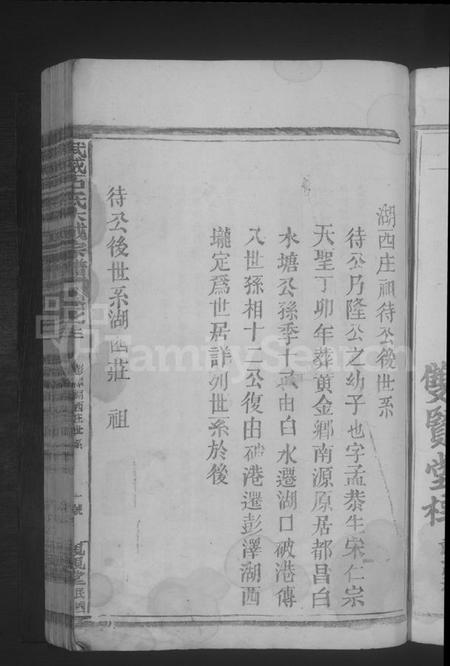 湖西庄祖待公後世系
待公乃隆公之幼子也字孟恭生宋仁宗
天聖丁卯年葬黄金鄉南源原居都昌白
水塘公孫季十武由白水遷湖口破港傳
八世孫相十二公復由破港遷彭澤湖西
壠定爲世居詳列世系於後
待公後世系湖西莊祖
雙賢堂
FamilySearch